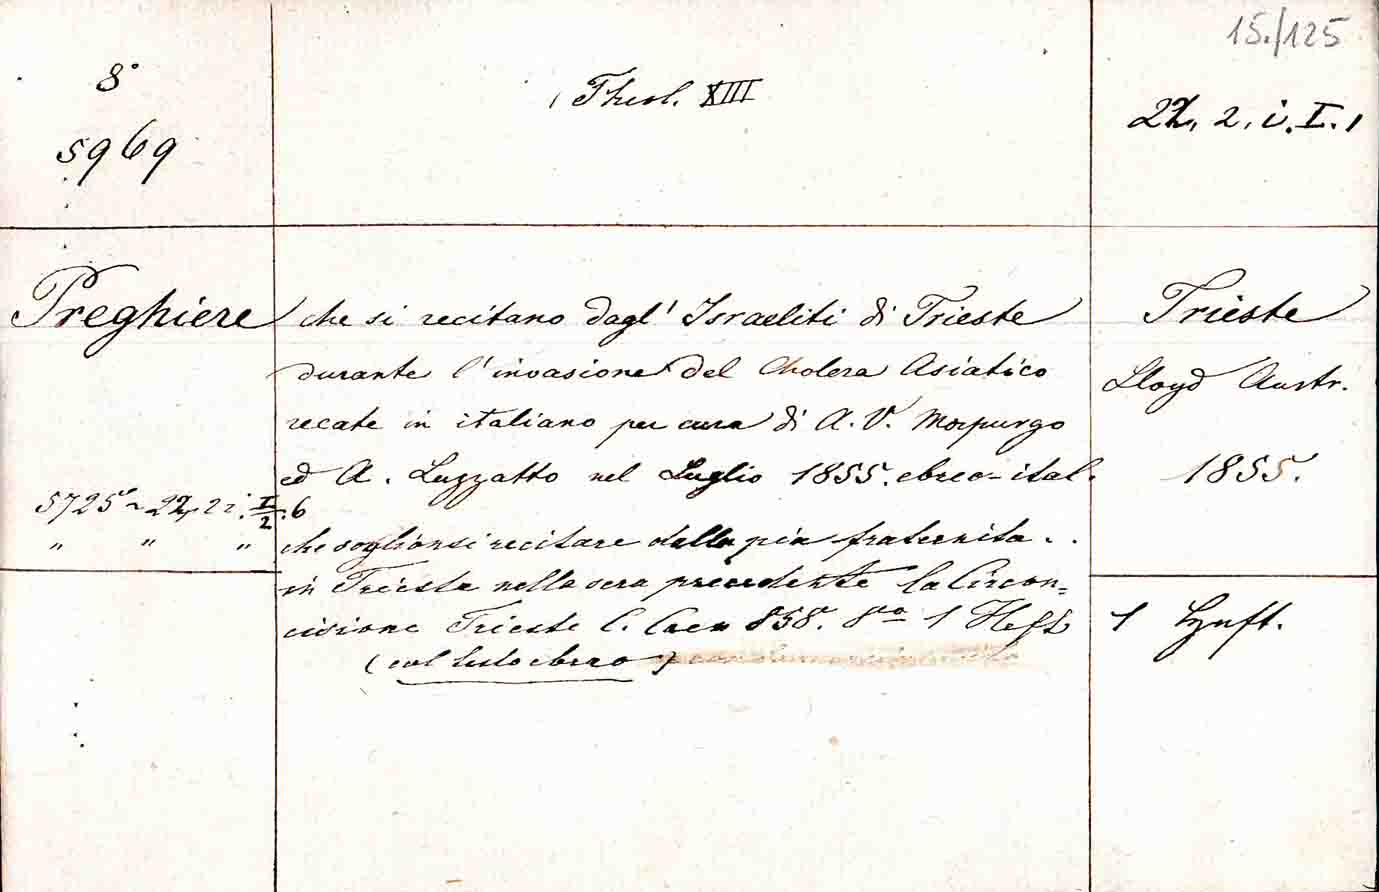 15./125
8°
5969
Theol. XIII
22, 2. i. I. 1
Preghiere
che si recitano dagl' Israeliti di Trieste
durante l'invasione del Cholera Asiatico
recate in italiano per cura di A. V. Morpurgo
ed A. Luzzatto nel Luglio 1855. ebreo-ital.
Trieste
Lloyd Austr.
1855.
5725 ~ 22, 2 i. I/2. 6
" " "
che soglionsi recitare dalla pia fraternita . .
in Trieste nella sera precedente la Circon=
cisione Trieste C. Coen 858. 8vo 1 Heft
(col testo ebreo)
1 Heft.